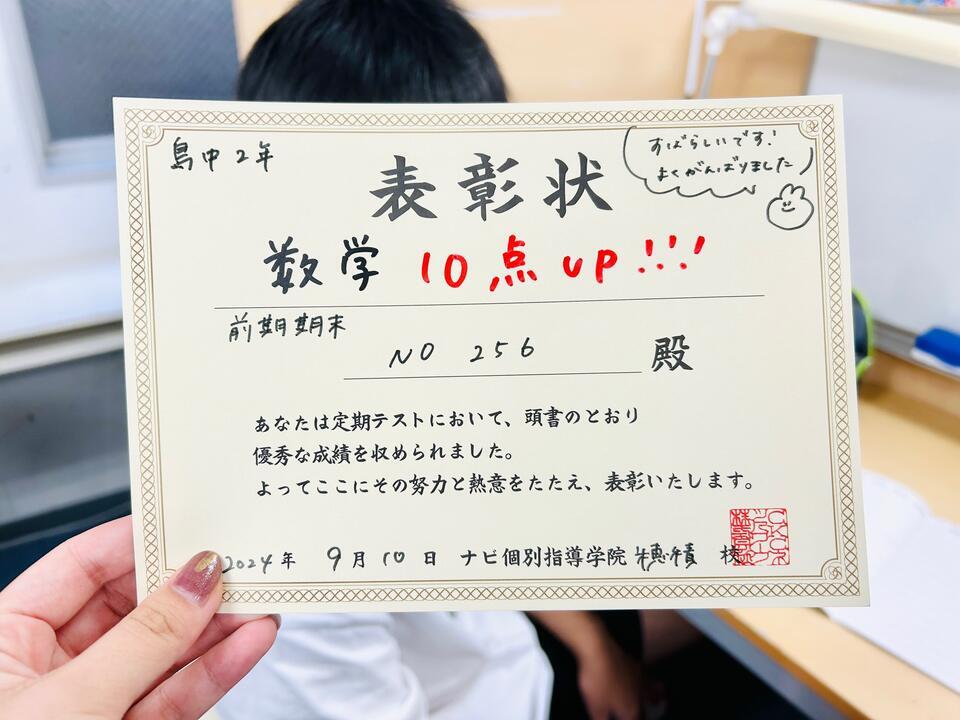 島中2年
すばらしいです!
よくがんばりました
表彰状
数学 10点up!!!
前期期末
NO 256 殿
あなたは定期テストにおいて、頭書のとおり
優秀な成績を収められました。
よってここにその努力と熱意をたたえ、表彰いたします。
2024年 9月10日 ナビ個別指導学院 穂積 校